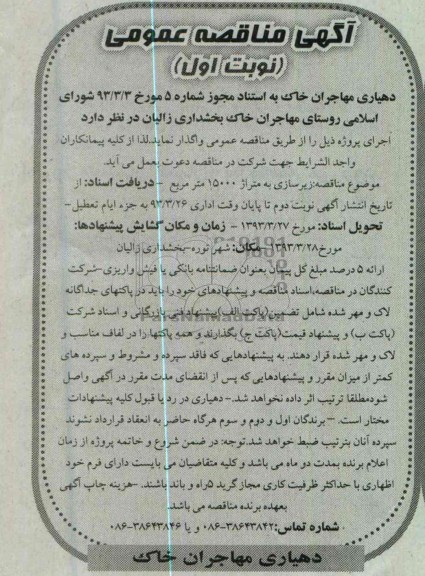 آگهی مناقصه عمومی
(نوبت اول)
دهیاری مهاجران خاک به استناد مجوز شماره ۵ مورخ ۹۳/۳/۳ شورای
اسلامی روستای مهاجران خاک بخشداری زالیان در نظر دارد
اجرای پروژه ذیل را از طریق مناقصه عمومی واگذار نماید.لذا از کلیه پیمانکاران
واجد الشرایط جهت شرکت در مناقصه دعوت بعمل می آید.
موضوع مناقصه:زیرسازی به متراژ ۱۵۰۰۰ متر مربع –دریافت اسناد: از
تاریخ انتشار آگهی نوبت دوم تا پایان وقت اداری ۹۳/۳/۲۶ به جزء ایام تعطیل–
تحویل اسناد: مورخ ۱۳۹۳/۳/۲۷ – زمان و مکان گشایش پیشنهادها:
مورخ ۱۳۹۳/۳/۲۸–مکان: شهر توره–بخشداری زالیان
ارائه ۵ درصد مبلغ کل پیمان بعنوان ضمانتنامه بانکی یا فیش واریزی–شرکت
کنندگان در مناقصه،اسناد مناقصه و پیشنهادهای خود را باید در پاکتهای جداگانه
لاک و مهر شده شامل تضمین(پاکت الف)پیشنهاد فنی بازرگانی و اسناد شرکت
(پاکت ب) و پیشنهاد قیمت(پاکت ج) بگذارند و همه پاکتها،را در لفاف مناسب و
لاک و مهر شده قرار دهند. به پیشنهادهایی که فاقد سپرده و مشروط و سپرده های
کمتر از میزان مقرر و پیشنهادهایی که پس از انقضای مدت مقرر در آگهی واصل
شودمطلقا ترتیب اثر داده نخواهد شد.– دهیاری در رد یا قبول کلیه پیشنهادات
مختار است. –برندگان اول و دوم و سوم هرگاه حاضر به انعقاد قرارداد نشوند
سپرده آنان بترتیب ضبط خواهد شد.توجه: در ضمن شروع و خاتمه پروژه از زمان
اعلام برنده بمدت دو ماه می باشد و کلیه متقاضیان می بایست دارای فرم خود
اظهاری با حداکثر ظرفیت کاری مجاز گرید ۵راه و باند باشند. –هزینه چاپ آگهی
بعهده برنده مناقصه می باشد.
شماره تماس: ۳۸۶۴۳۸۴۲-۰۸۶ و یا ۳۸۶۴۳۸۴۶-۰۸۶
دهیاری مهاجران خاک